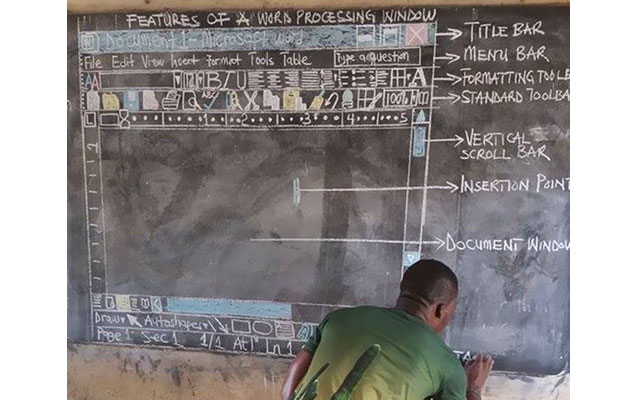 FEATURES OF A WORD PROCESSING WINDOW
Document 1 - Microsoft word
TITLE BAR
File Edit View Insert format Tools Table
Type a question
MENU BAR
AA
B I U
A
FORMATTING TOOLB
100%
STANDARD TOOLBA
8 1 2 3 4 5
VERTICAL
SCROLL BAR
INSERTION POINT
DOCUMENT WINDOW
Draw Autoshapes
Page 1 Sec 1 1/1 At 1" Ln 1
TA